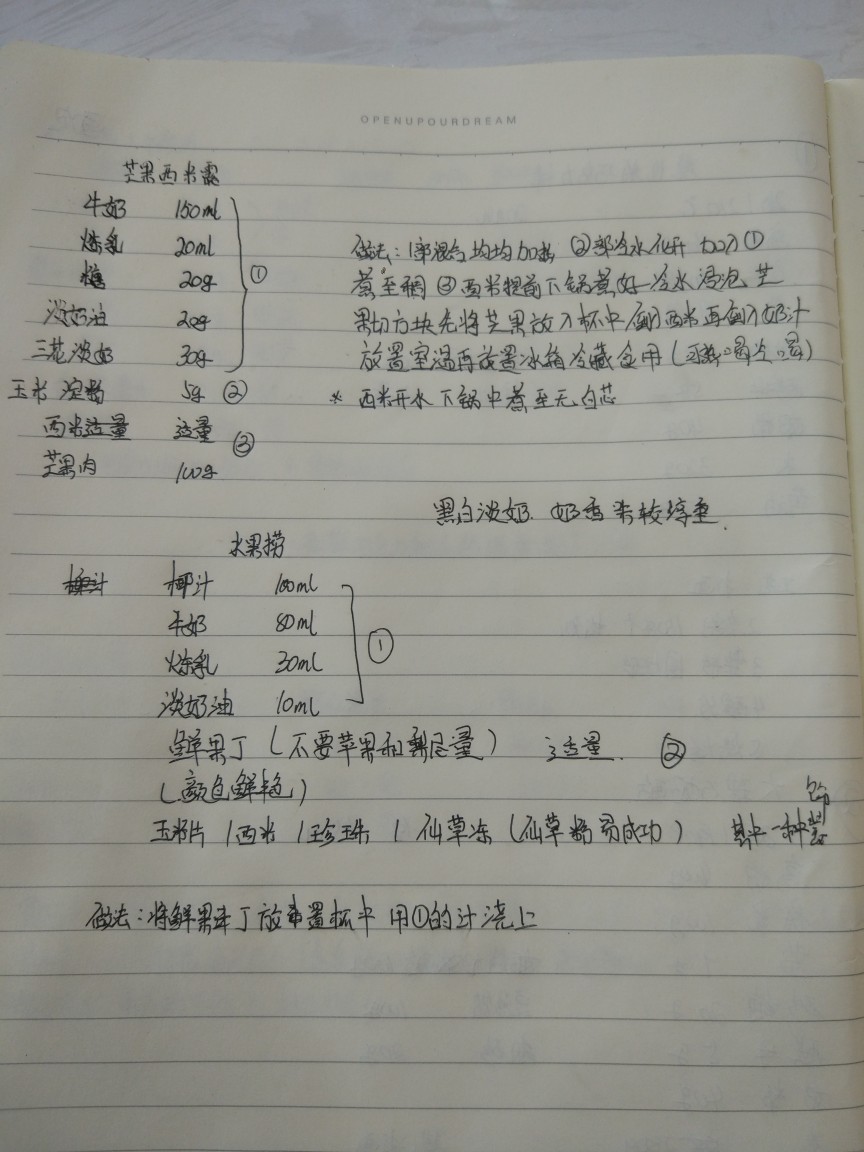 OPENUPOURDREAM
芒果西米露
牛奶 150ml
炼乳 20ml
糖 20g
淡奶油 20g
三花淡奶 30g
①
玉米淀粉 5g ②
西米适量 适量
③
芒果肉 100g
做法：1部混合均均加热 ②部冷水化开 加入①
煮至稠 ③西米提前下锅煮好冷水浸泡 芒
果切方块先将芒果放入杯中 倒西米再倒入奶汁
放置室温再放置冰箱冷藏食用（可热喝冷喝）
* 西米开水下锅中煮至无白芯
黑白淡奶. 奶香来较纯重.
水果捞
椰汁 椰汁 100ml
牛奶 80ml
炼乳 30ml
淡奶油 10ml
①
鲜果丁（不要苹果和梨尽量） 适量. ②
（颜色鲜艳）
玉米片 / 西米 / 珍珠 / 仙草冻（仙草粉易成功） 其中一种
做法：将鲜果丁放置杯中 用①的汁浇上